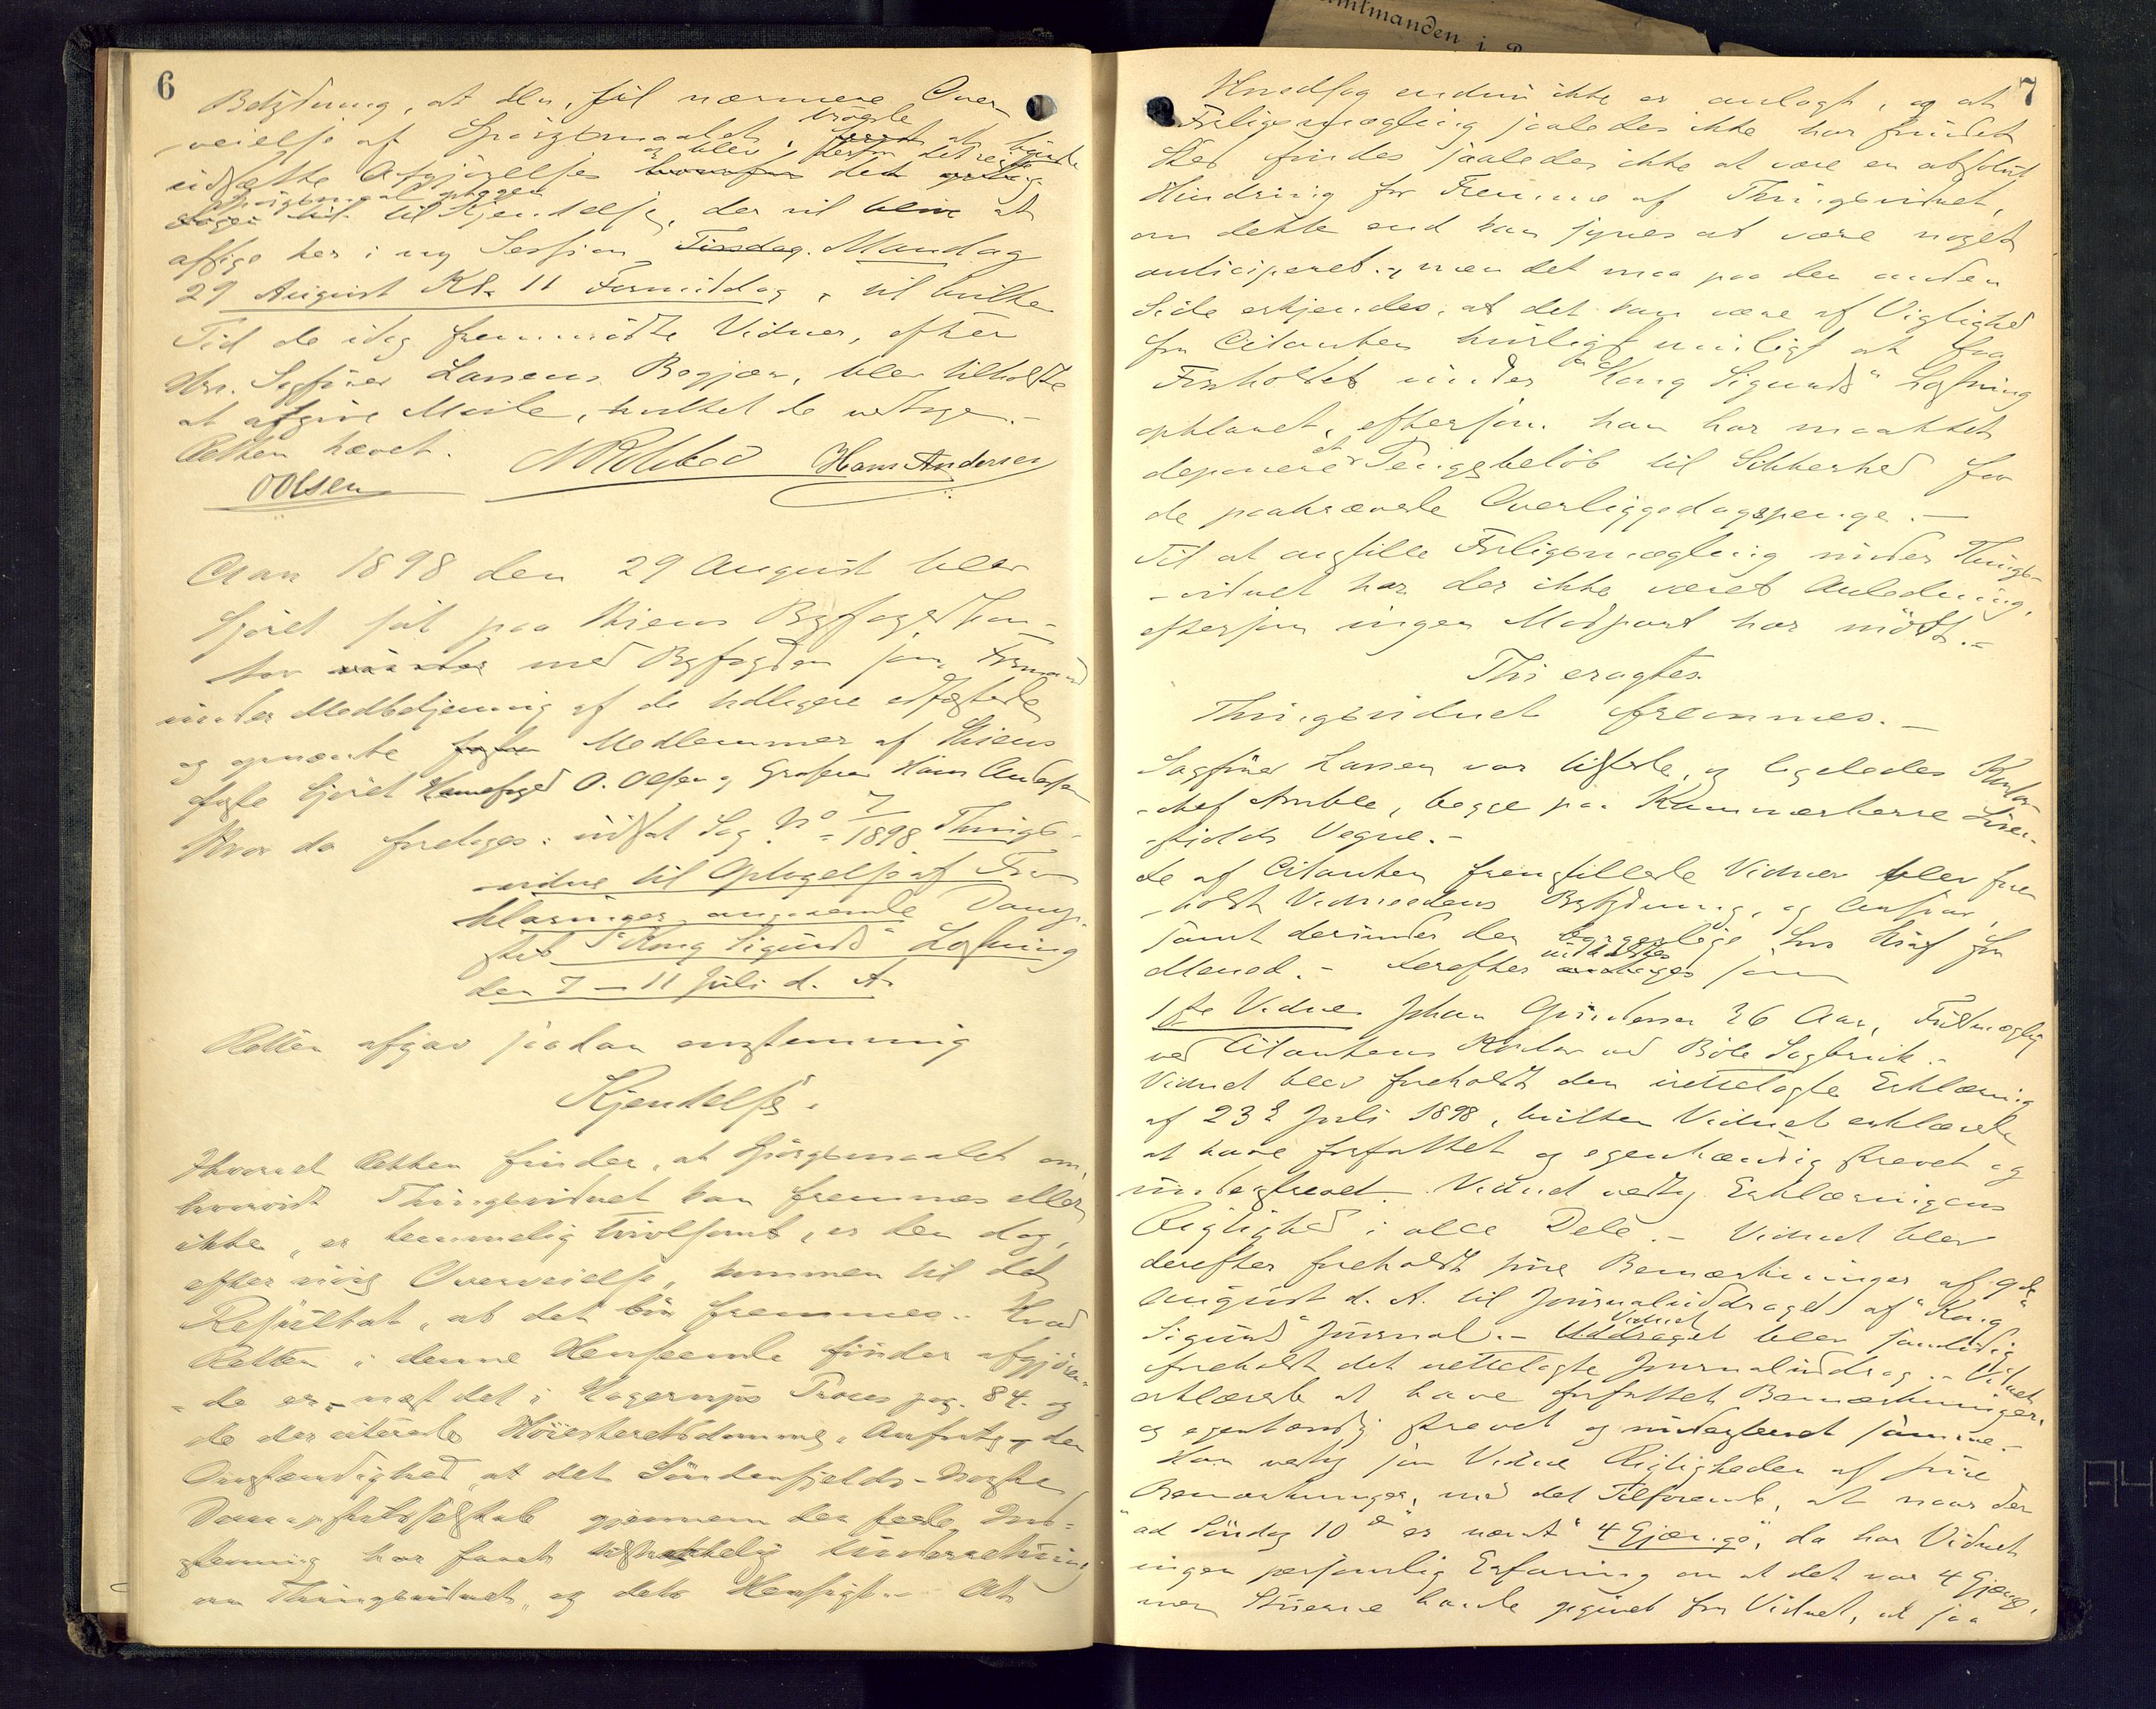 6
Betydning, at den, til nærmere Over-
veielse af Spørgsmaalet, at
udsætte Afgjørelsen og blev den
Spørgsmaal optagen til Kjendelse, der vil blive at
afsige her i ny Session Tirsdag. Mandag
29 August Kl. 11 Formiddag, til hvilken
Tid de idag fremmødte Vidner, efter
Hr. Sagfører Larsens Begjær, blev tilholdte
at afgive Møde, hvilket de vedtog.-
Retten hævet.
O Olsen
Hans Andersen
Aar 1898 den 29 August blev
Sjøret sat paa Skiens Byfogedkon-
tor med Byfogden som Formand
under Medbetjening af de tidligere edfæstede
og opnævnte Medlemmer af Skiens
faste Sjøret Havnefoged O. Olsen og Hans Andersen
Hvor da foretoges: udsat Sag No 7/1898 Things-
vidne til Optagelse af For-
klaringer angaaende Damp-
skib "Kong Sigurds" Losning
den 7 - 11 Juli d. A.
Retten afgav saadan enstemmig
Kjendelse.
Hvorvel Retten finder, at Spørgsmaalet om,
hvorvidt Thingsvidnet kan fremmes eller
ikke, er temmelig tvivlsomt, er den dog,
efter nøie Overveielse, kommen til det
Resultat, at det bør fremmes.- Hvad
Retten i denne Henseende finder afgjøren-
de er, næst det i Hagerups Proces pag. 84. og
de der citerede Høiesteretsdomme Anførte, den
Omstændighed, at det Søndenfjelds-Norske
Dampskibsselskab gjennem den skede Ind-
stevning har faaet tilstrækkelig Underretning
om Thingsvidnet, og dets Hensigt.- At
7
Hovedsag endnu ikke er anlagt, og at
Forligsmægling saaledes ikke har fundet
Sted findes saaledes ikke at være en absolut
Hindring for Fremme af Thingsvidnet,
om dette end kan synes at være noget
anticiperet., men det maa paa den anden
Side erkjendes, at det kan være af Vigtighed
for Citanten hurligst muligst at faa
Forholdet under "Kong Sigurds" Losning
opklaret, eftersom han har maattet
deponere et Pengebeløb til Sikkerhed for
de paakrævede Overliggedagspenge.-
Til at anstille Forligsmægling under Things-
-vidnet har der ikke været Anledning,
eftersom ingen Modpart har mødt.-
Thi eragtes.
Thingsvidnet fremmes.-
Sagfører Larsen var tilstede, og ligeledes Kontor-
-chef Amble, begge paa Kammerherre Løven-
skiolds Vegne.-
De af Citanten fremstillede Vidner blev fore-
-holdt Vidneedens Betydning, og Ansvar,
samt derunder den borgerlige Lovs Straf for
Mened.- Derefter udskilles som
1ste Vidne Johan Gundersen 26 Aar,
ved Citantens Kontor ved Bøle Sagbrug.-
Vidnet blev foreholdt den irettelagte Erklæring
af 23de Juli 1898, hvilken Vidnet erklærede
at have forfattet og egenhændig skrevet og
underskrevet. Vidnet vedtog Erklæringens
Rigtighed i alle Dele.- Vidnet blev
derefter foreholdt sine Bemærkninger af 9de
August d. A. til Journaluddraget af "Kong
Sigurds" Journal.- Uddraget Vidnet blev samtidig
foreholdt det irettelagte Journaluddrag.- Vidnet
erklærede at have forfattet Bemærkningerne,
og egenhændig skrevet og underskrevet samme.-
Han vedtog som Vidne Rigtigheden af sine
Bemærkninger, med det Tilføiende, at naar der
"ad Søndag 10de" er nævnt "4 Gjænge", da har Vidnet
ingen personlig Erfaring om at det var 4 Gjænge,
men Stuerne havde opgivet for Vidnet, at saa
Amtmanden i B